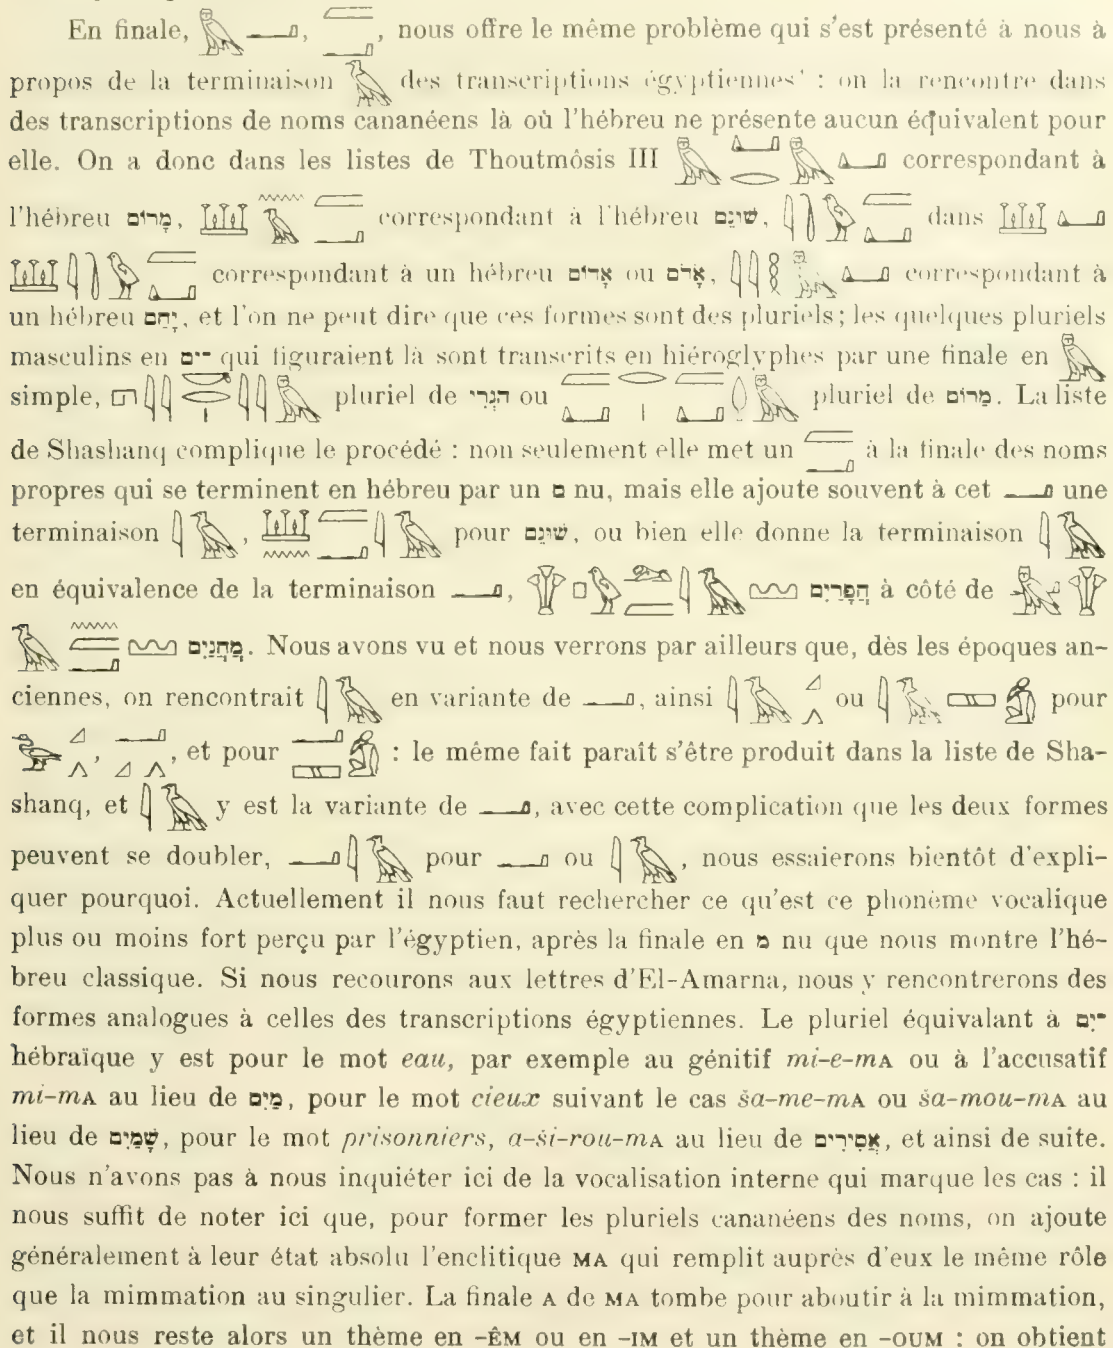 En finale, 𓅓𓂝, 𓐝𓂝, nous offre le même problème qui s'est présenté à nous à
propos de la terminaison 𓄿 des transcriptions égyptiennes' : on la rencontre dans
des transcriptions de noms cananéens là où l'hébreu ne présente aucun équivalent pour
elle. On a donc dans les listes de Thoutmôsis III 𓅓𓂞𓂋𓅓𓂞 correspondant à
l'hébreu מָרוֹם, 𓆷𓈖𓅓𓐝𓂝 correspondant à l'hébreu שׁוּנֵם, 𓇋𓍘𓅱𓐝𓂞 dans 𓆷𓂞
𓆷𓇋𓍘𓅱𓐝𓂞 correspondant à un hébreu אָדוֹם ou אָדֹם, 𓇋𓇋𓎛𓅓𓂞 correspondant à
un hébreu יָחַם, et l'on ne peut dire que ces formes sont des pluriels; les quelques pluriels
masculins en ־ִים qui figuraient là sont transcrits en hiéroglyphes par une finale en 𓅓
simple, 𓉔𓇋𓇋𓂋𓏤𓇋𓇋𓅓 pluriel de הַגְרִי ou 𓐝𓂞𓂋𓏤𓐝𓂞𓅓 pluriel de מָרוֹם. La liste
de Shashanq complique le procédé : non seulement elle met un 𓐝𓂝 à la finale des noms
propres qui se terminent en hébreu par un ם nu, mais elle ajoute souvent à cet 𓂝 une
terminaison 𓇋𓄿, 𓆷𓈖𓐝𓂝𓇋𓄿 pour שׁוּנֵם, ou bien elle donne la terminaison 𓇋𓄿
en équivalence de la terminaison 𓂝, 𓇉𓊪𓅱𓃭𓐝𓇋𓄿𓈉 הֲפָרַיִם à côté de 𓅓𓇉
𓄿𓈖𓐝𓂝𓈉 מַחֲנַיִם. Nous avons vu et nous verrons par ailleurs que, dès les époques an-
ciennes, on rencontrait 𓇋𓄿 en variante de 𓂝, ainsi 𓇋𓄿𓈎𓂻 ou 𓇋𓄿𓈙𓀁 pour
𓅭𓈎𓂻, 𓂝𓈎𓂻, et pour 𓂝𓈙𓀁 : le même fait paraît s'être produit dans la liste de Sha-
shanq, et 𓇋𓄿 y est la variante de 𓂝, avec cette complication que les deux formes
peuvent se doubler, 𓂝𓇋𓄿 pour 𓂝 ou 𓇋𓄿, nous essaierons bientôt d'expli-
quer pourquoi. Actuellement il nous faut rechercher ce qu'est ce phonème vocalique
plus ou moins fort perçu par l'égyptien, après la finale en מ nu que nous montre l'hé-
breu classique. Si nous recourons aux lettres d'El-Amarna, nous y rencontrerons des
formes analogues à celles des transcriptions égyptiennes. Le pluriel équivalant à ־ִים
hébraïque y est pour le mot eau, par exemple au génitif mi-e-mA ou à l'accusatif
mi-mA au lieu de מַיִם, pour le mot cieux suivant le cas ša-me-mA ou ša-mou-mA au
lieu de שָׁמַיִם, pour le mot prisonniers, a-ši-rou-mA au lieu de אֲסִירִים, et ainsi de suite.
Nous n'avons pas à nous inquiéter ici de la vocalisation interne qui marque les cas : il
nous suffit de noter ici que, pour former les pluriels cananéens des noms, on ajoute
généralement à leur état absolu l'enclitique MA qui remplit auprès d'eux le même rôle
que la mimmation au singulier. La finale A de MA tombe pour aboutir à la mimmation,
et il nous reste alors un thème en -ÊM ou en -IM et un thème en -OUM : on obtient